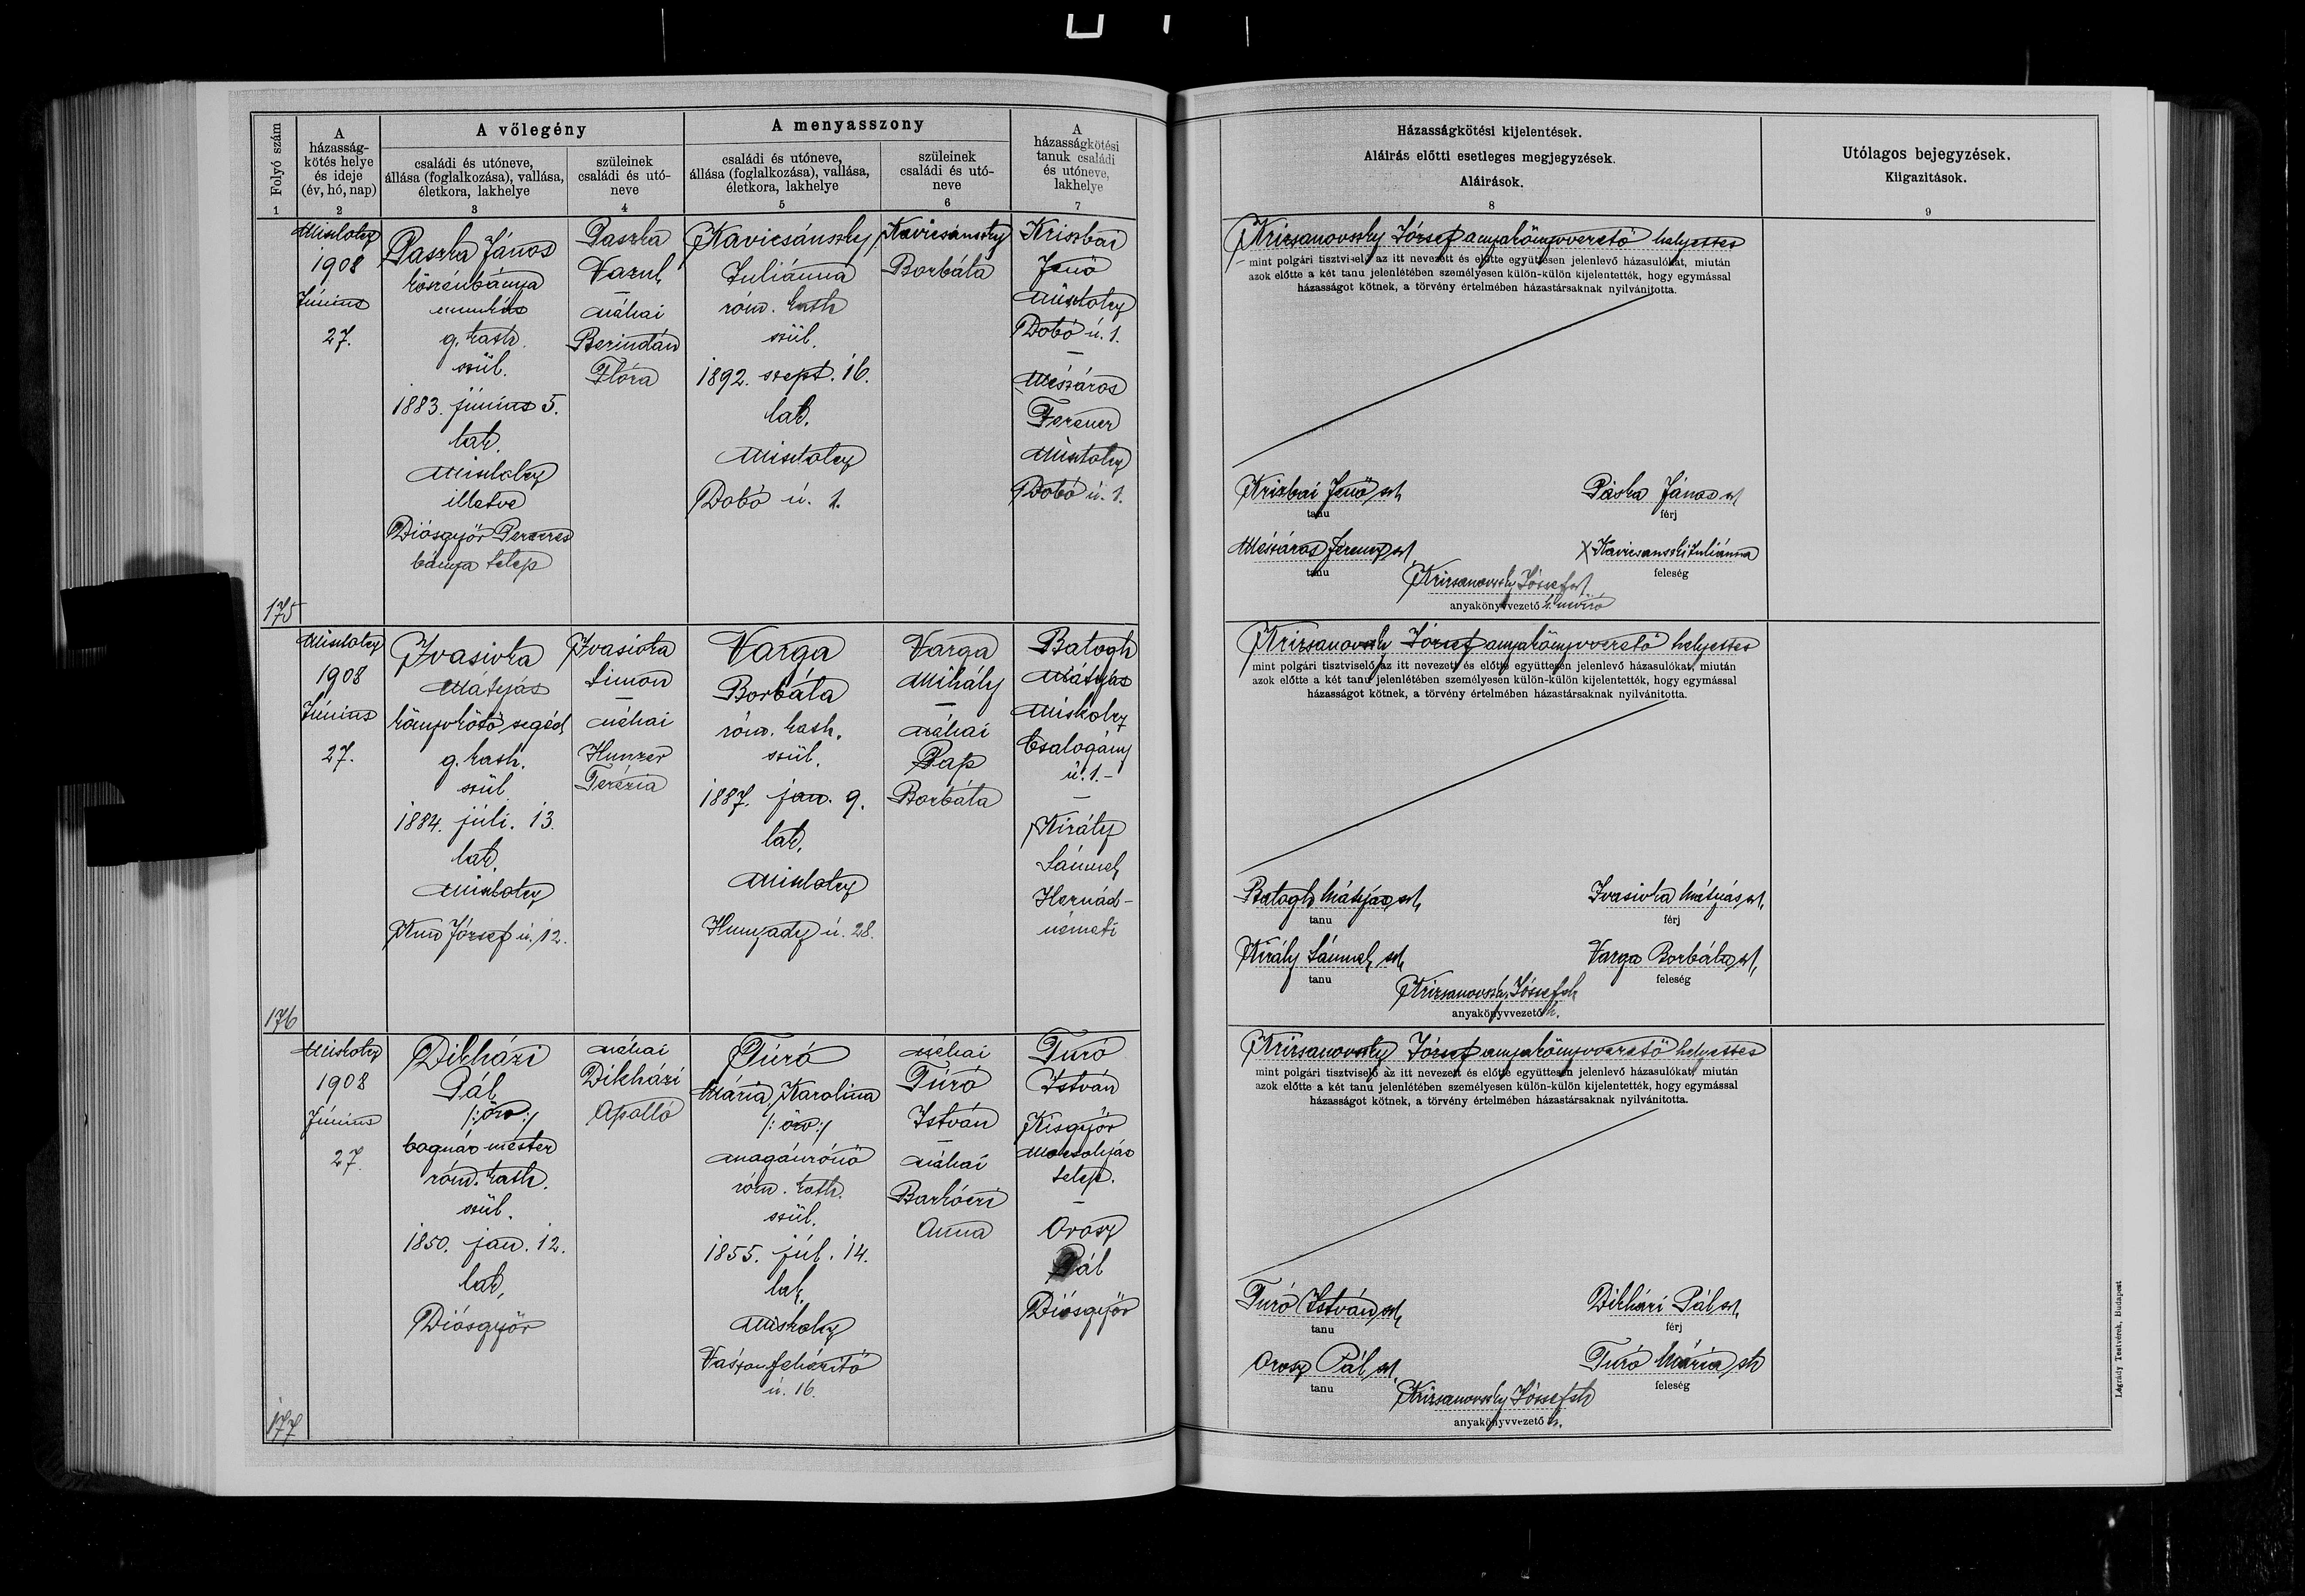 Folyó szám
A
házasság-
kötés helye
és ideje
(év, hó, nap)
A vőlegény
családi és utóneve,
állása (foglalkozása), vallása,
életkora, lakhelye
szüleinek
családi és utó-
neve
A menyasszony
családi és utóneve,
állása (foglalkozása), vallása,
életkora, lakhelye
szüleinek
családi és utó-
neve
A
házasságkötési
tanuk családi
és utóneve,
lakhelye
1
2
3
4
5
6
7
Házasságkötési kijelentések.
Aláírás előtti esetleges megjegyzések.
Aláirások.
8
Utólagos bejegyzések.
Kiigazitások.
9
175
Miskolcz
1908
Június
27.
Paszka János
kőszénbánya
munkás
g. kath.
szül.
1883. június 5.
lak.
Miskolcz
illetve
Diósgyőr Pereces
bánya telep
Paszka
Vazul
néhai
Berindán
Flóra
Kavicsánszky
Juliánna
róm. kath
szül.
1892. szept. 16.
lak.
Miskolcz
Dobó u. 1.
Kavicsánszky
Borbála
Kriszbai
Jenő
Miskolcz
Dobó ú. 1.
—
Mészáros
Ferencz
Miskolcz
Dobó ú. 1.
Krizsanovszky József anyakönyvvezető helyettes
mint polgári tisztviselő az itt nevezett és előtte együttesen jelenlevő házasulókat, miután
azok előtte a két tanu jelenlétében személyesen külön-külön kijelentették, hogy egymással
házasságot kötnek, a törvény értelmében házastársaknak nyilvánitotta.
Krizbai Jenő sk
tanu
Páska János sk
férj
Mészáros Ferencz sk
tanu
Kavicsanszki Juliánna
feleség
Krizsanovszky József sk
anyakönyvvezető h.
176
Miskolcz
1908
Június
27.
Ivasivka
Mátyás
könyvkötő segéd
g. kath.
szül
1884. júli. 13.
lak.
Miskolcz
Kun József ú. 12.
Ivasivka
Simon
—
néhai
Hunzer
Terézia
Varga
Borbála
róm. kath.
szül.
1887. jan. 9.
lak.
Miskolcz
Hunyady ú. 28.
Varga
Mihály
—
néhai
Pap
Borbála
Balogh
Mátyás
Miskolcz
Csalogány
ú. 1.-
—
Király
Sámuel
Hernád-
németi
Krizsanovszky József anyakönyvvezető helyettes
mint polgári tisztviselő az itt nevezett és előtte együttesen jelenlevő házasulókat, miután
azok előtte a két tanu jelenlétében személyesen külön-külön kijelentették, hogy egymással
házasságot kötnek, a törvény értelmében házastársaknak nyilvánitotta.
Balogh Mátyás sk,
tanu
Ivasivka Mátyás sk,
férj
Király Sámuel sk
tanu
Varga Borbála sk,
feleség
Krizsanovszky József sk
anyakönyvvezető h.
177
Miskolcz
1908
Június
27.
Dikházi
Pál
/: özv :/
bognár mester
róm. kath.
szül.
1850. jan. 12.
lak,
Diósgyőr
néhai
Dikházi
Apolló
Túró
Mária Karolina
/: özv :/
magánzónő
róm. kath.
szül.
1855. júl. 14.
lak,
Miskolcz
Vászonfehéritő
ú. 16.
néhai
Túró
István
—
néhai
Barkóczi
Anna
Turó
István
Kisgyőr
Mocsolyás
telep.
—
Orosz
Pál
Diósgyőr
Krizsanovszky József anyakönyvvezető helyettes
mint polgári tisztviselő az itt nevezett és előtte együttesen jelenlevő házasulókat, miután
azok előtte a két tanu jelenlétében személyesen külön-külön kijelentették, hogy egymással
házasságot kötnek, a törvény értelmében házastársaknak nyilvánitotta.
Turó István sk,
tanu
Dikházi Pál sk,
férj
Orosz Pál sk,
tanu
Turó Mária sk
feleség
Krizsanovszky József sk
anyakönyvvezető h.
Légrády Testvérek, Budapest